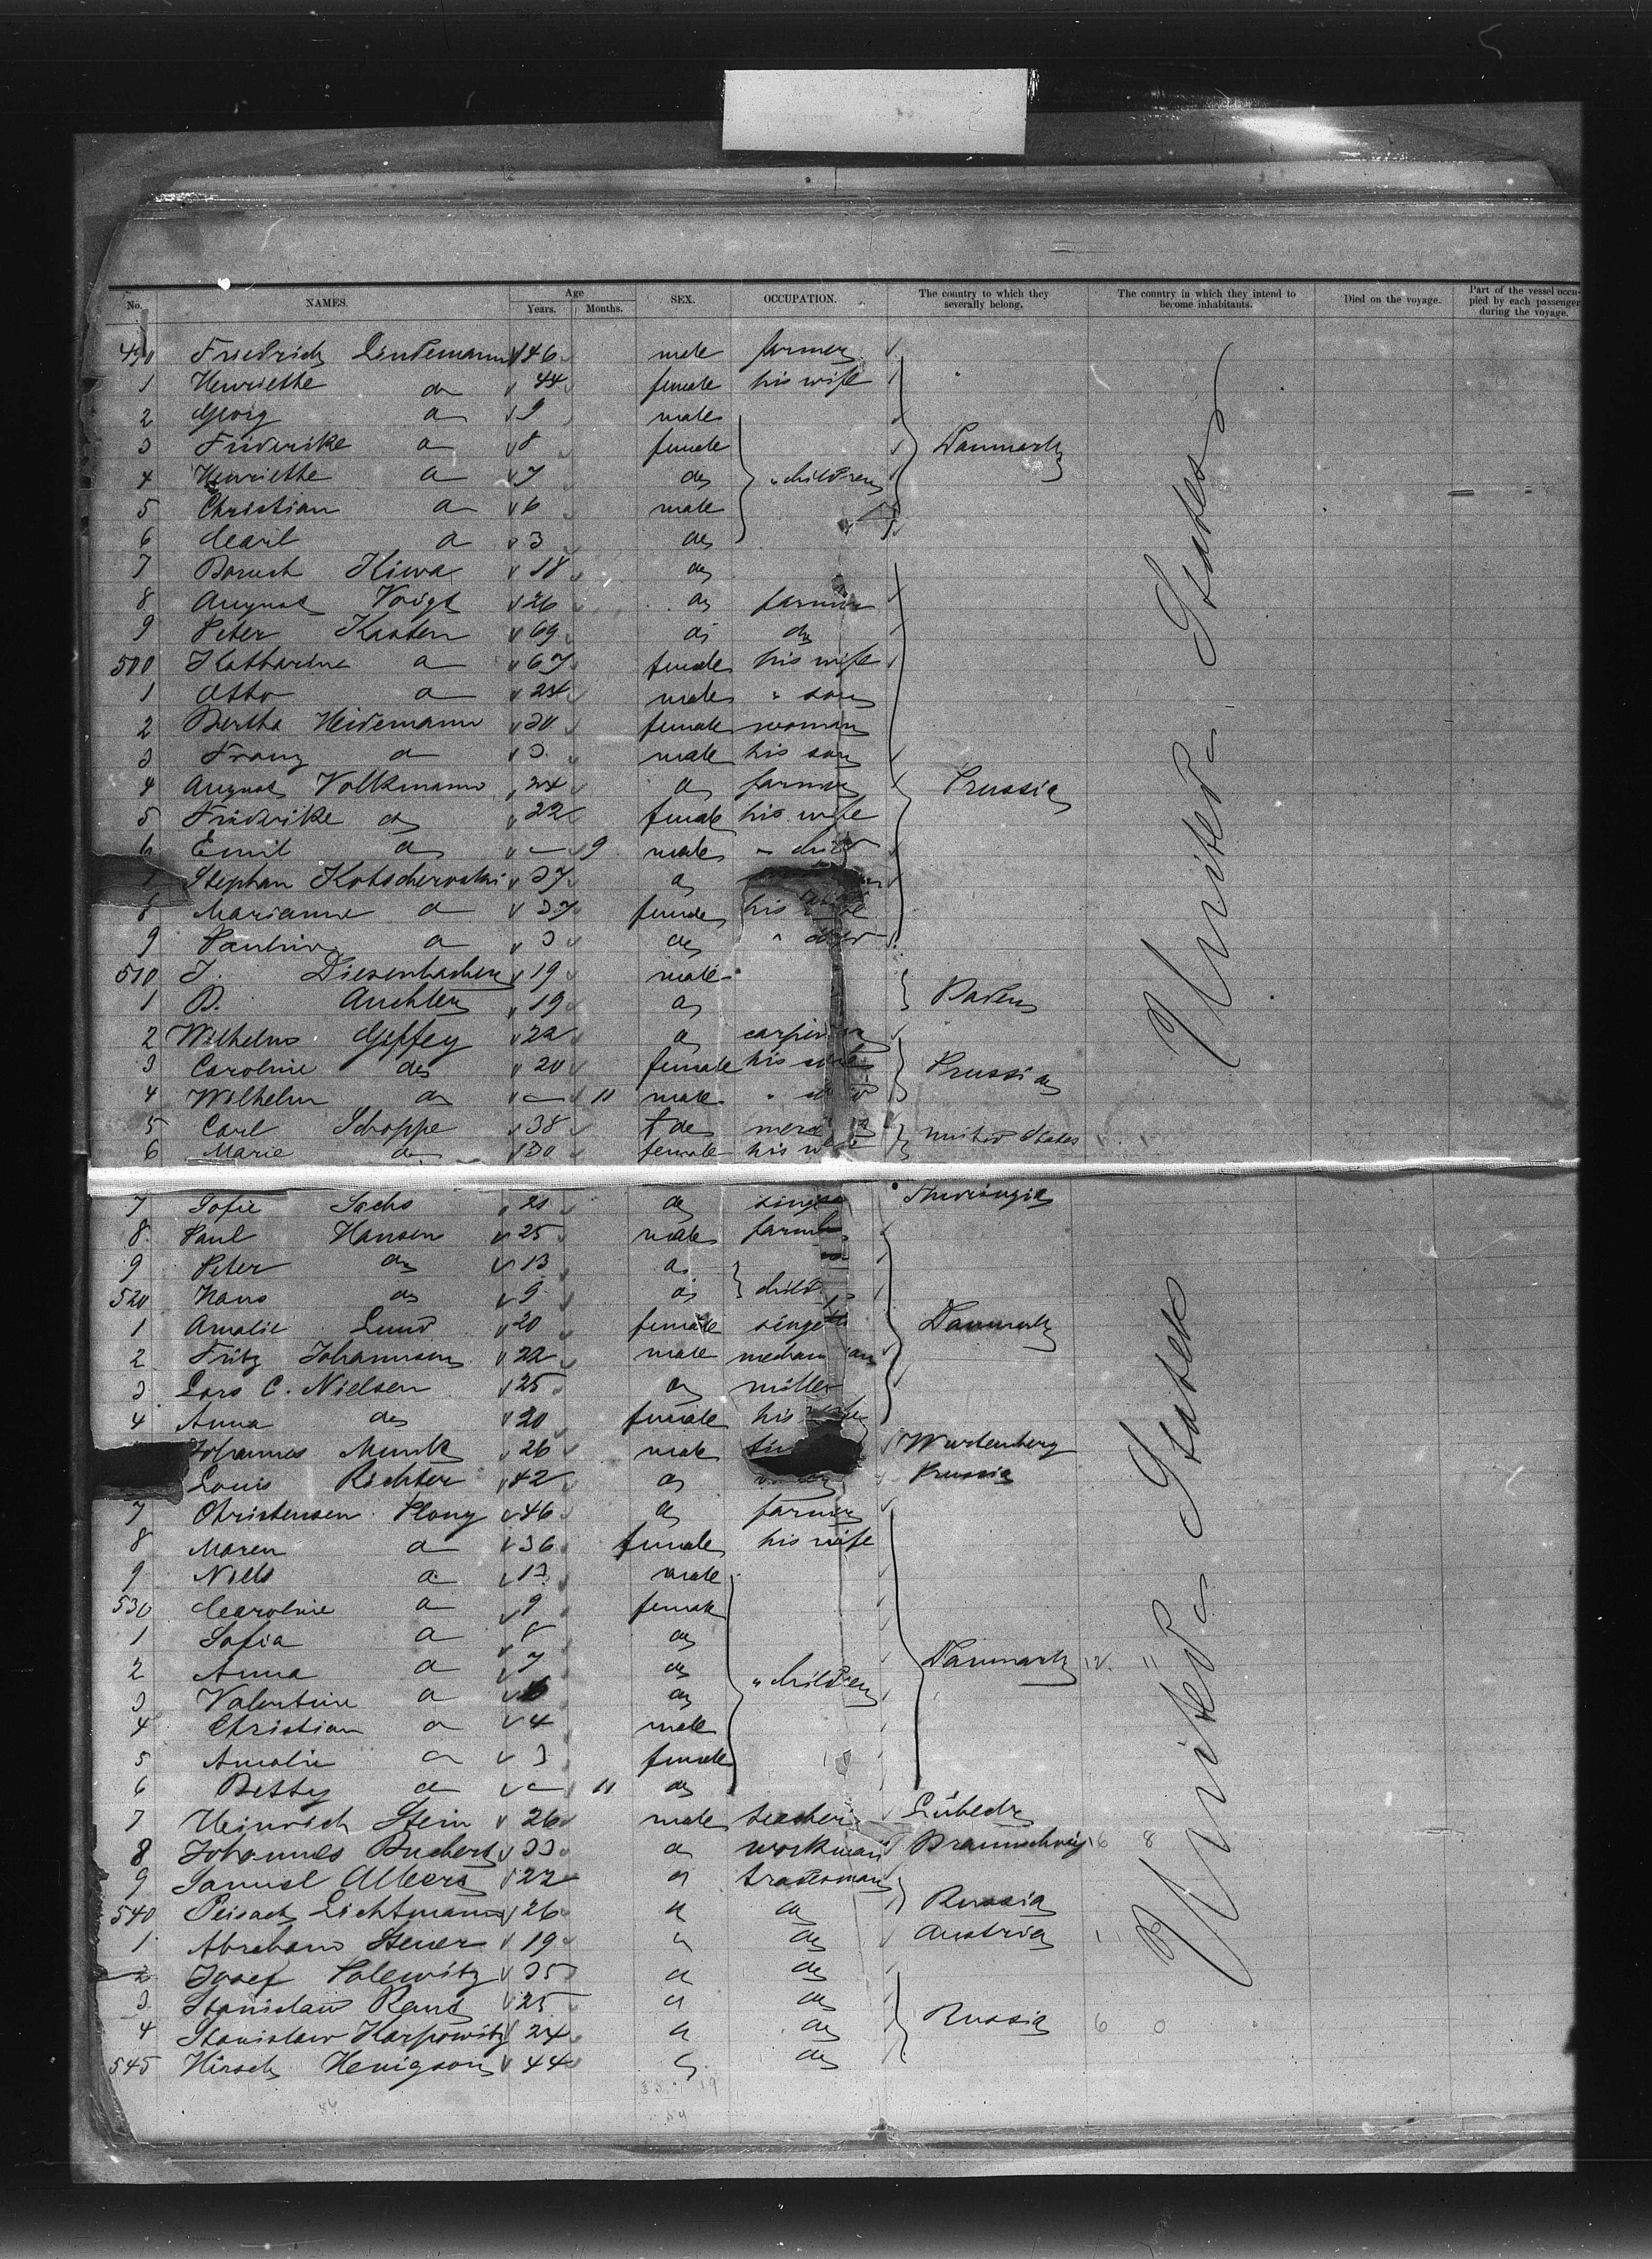 No. NAMES. Age Years. Months. SEX. OCCUPATION. The country to which they severally belong. The country in which they intend to become inhabitants. Died on the voyage. Part of the vessel occupied by each passenger during the voyage.
490 Friedrich Lindemann 46 male farmer
1 Henriethe do 44 female his wife
2 Georg do 9 male
3 Friderike do 8 female Danmark
4 Henriethe do 7 do " children
5 Christian do 6 male
6 Carl do 3 do
7 Baruch Kiwa 18 do
8 August Voigt 26 do farmer
9 Peter Kasten 69 do do
500 Katharine do 67 female his wife
1 Otto do 24 male " son
2 Bertha Heidemann 30 female woman
3 Franz do 3 male his son
4 August Volkmann 24 do farmer Prussia
5 Friderike do 22 female his wife
6 Emil do — 9 male " child
Stephan Kotscherowski 37 do
8 Marianne do 37 female his wife
9 Pauline do 3 do "
510 J. Diesenbacher 19 male
1 B. Auchter 19 do Baden
2 Wilhelm Geffey 22 do
3 Caroline do 20 female his wife Prussia
4 Wilhelm do — 11 male "
5 Carl Schoppe 38 do United States
6 Marie do 30 female his wife
7 Sofie Sachs 21 do Thuringia
8 Paul Hansen 25 male farmer
9 Peter do 13 do
520 Hans do 9 do
1 Amalie Lund 20 female Danmark
2 Fritz Johannsen 22 male
3 Lars C. Nielsen 25 do miller
4 Anna do 20 female his
Johannes Munk 26 male Wurtenberg
Louis Richter 42 do Prussia
7 Christensen Plony 46 do farmer
8 Maren do 36 female his wife
9 Niels do 13 male
530 Caroline do 9 female
1 Sofia do 8 do
2 Anna do 7 do Danmark
3 Valentine do 6 do " children
4 Christian do 4 male
5 Amalie do 3 female
6 Betty do — 11 do
7 Heinrich Stein 26 male teacher Lübeck
8 Johannes Buchert 33 do workman Braunschweig 6 8
9 Samuel Albers 22 do tradesman
540 Peisach Lichtmann 26 do do Russia
1 Abraham Stener 19 do do Austria
2 Josef Polewitz 35 do do
3 Stanislaw Rand 25 do do
4 Stanislaw Karpowitz 24 do do Russia 6 0
545 Hirsch Henigson 44 do do
United States
United States